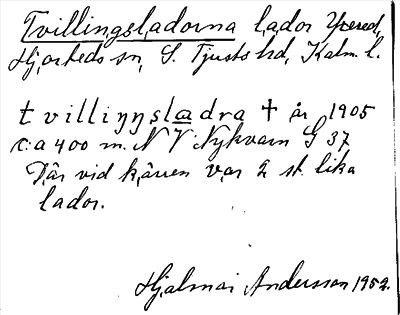 Tvillingsladorna lador Yxered,
Hjorteds sn, S. Tjusts hd, Kalm. l.
tvilliŋŋsladra † år 1905
c:a 400 m. N V Nykvarn G 37
Där vid kärren var 2 st. lika
lador.
Hjalmar Andersson 1952.